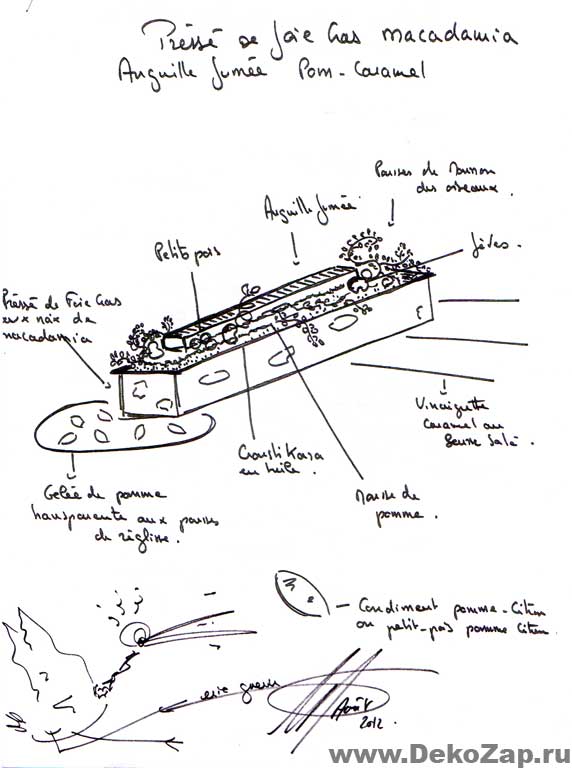 Préssé de foie Gras macadamia
Anguille fumée Pom-Caramel
Pousses de Mouron
des oiseaux.
Anguille fumée
Petits pois
fèves.
Préssé de Foie Gras
aux noix de
macadamia
Vinaigrette
Caramel au
Beurre Salé.
Crousti Kara
en tuile.
Mousse de
pomme.
Gelée de pomme
transparente aux pousses
de réglisse.
Condiment pomme-Citron
ou petit-pois pomme Citron.
Août
2012.
www.DekoZap.ru